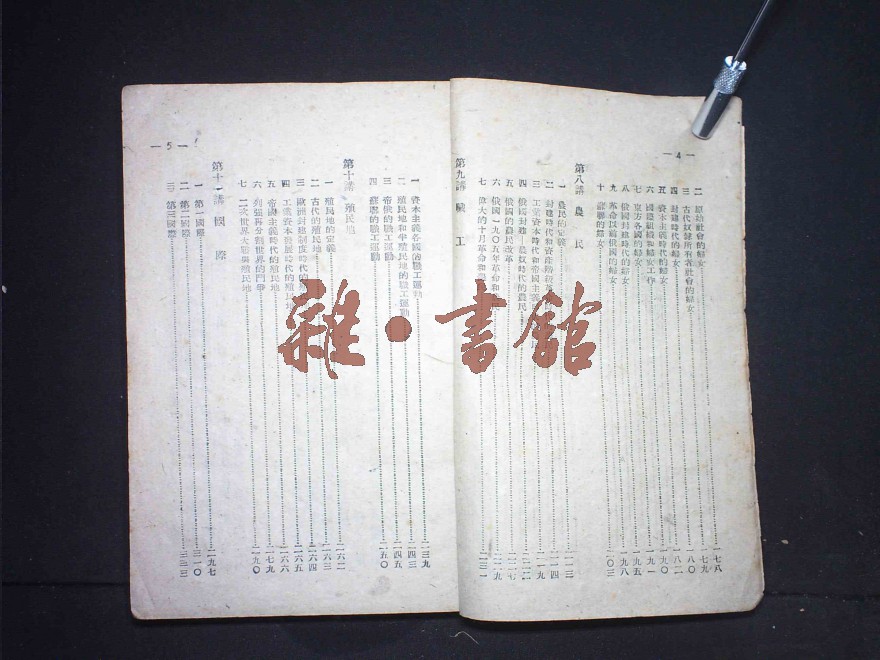 — 4 —
二 原始社會的婦女 一七八
三 古代奴隸所有者社會的婦女 一七九
四 封建時代的婦女 一八〇
五 資本主義時代的婦女 一八二
六 國際組織和婦女工作 一九〇
七 東方各國的婦女 一九五
八 俄國封建時代的婦女 一九八
九 革命以前俄國的婦女
十 蘇聯的婦女 二〇三
第八講 農民
一 農民的定義 二一三
二 封建時代和資產階級革 二一四
三 工業資本時代和帝國主義 二一九
四 俄國封建—農奴時代的農民 二二二
五 俄國的農民改革 二二七
六 俄國一九〇五年革命和 二二九
七 偉大的十月革命和 二三一
第九講 職工
一 資本主義各國的職工運動 一三九
二 殖民地和半殖民地的職工運動 一四三
三 帝俄的職工運動 一四五
四 蘇聯的職工運動 一五〇
第十講 殖民地
一 殖民地的定義 一六二
二 古代的殖民地 一六三
三 歐洲封建制度時代的 一六四
四 工業資本發展時代的殖民地 一六五
五 帝國主義時代的殖民地 一六六
六 列強再分割世界的鬥爭 一七九
七 二次世界大戰與殖民地 一九〇
第十一講 國際
一 第一國際 一九七
二 第二國際 三一〇
三 第三國際 三三三
— 5 —
雜·書館